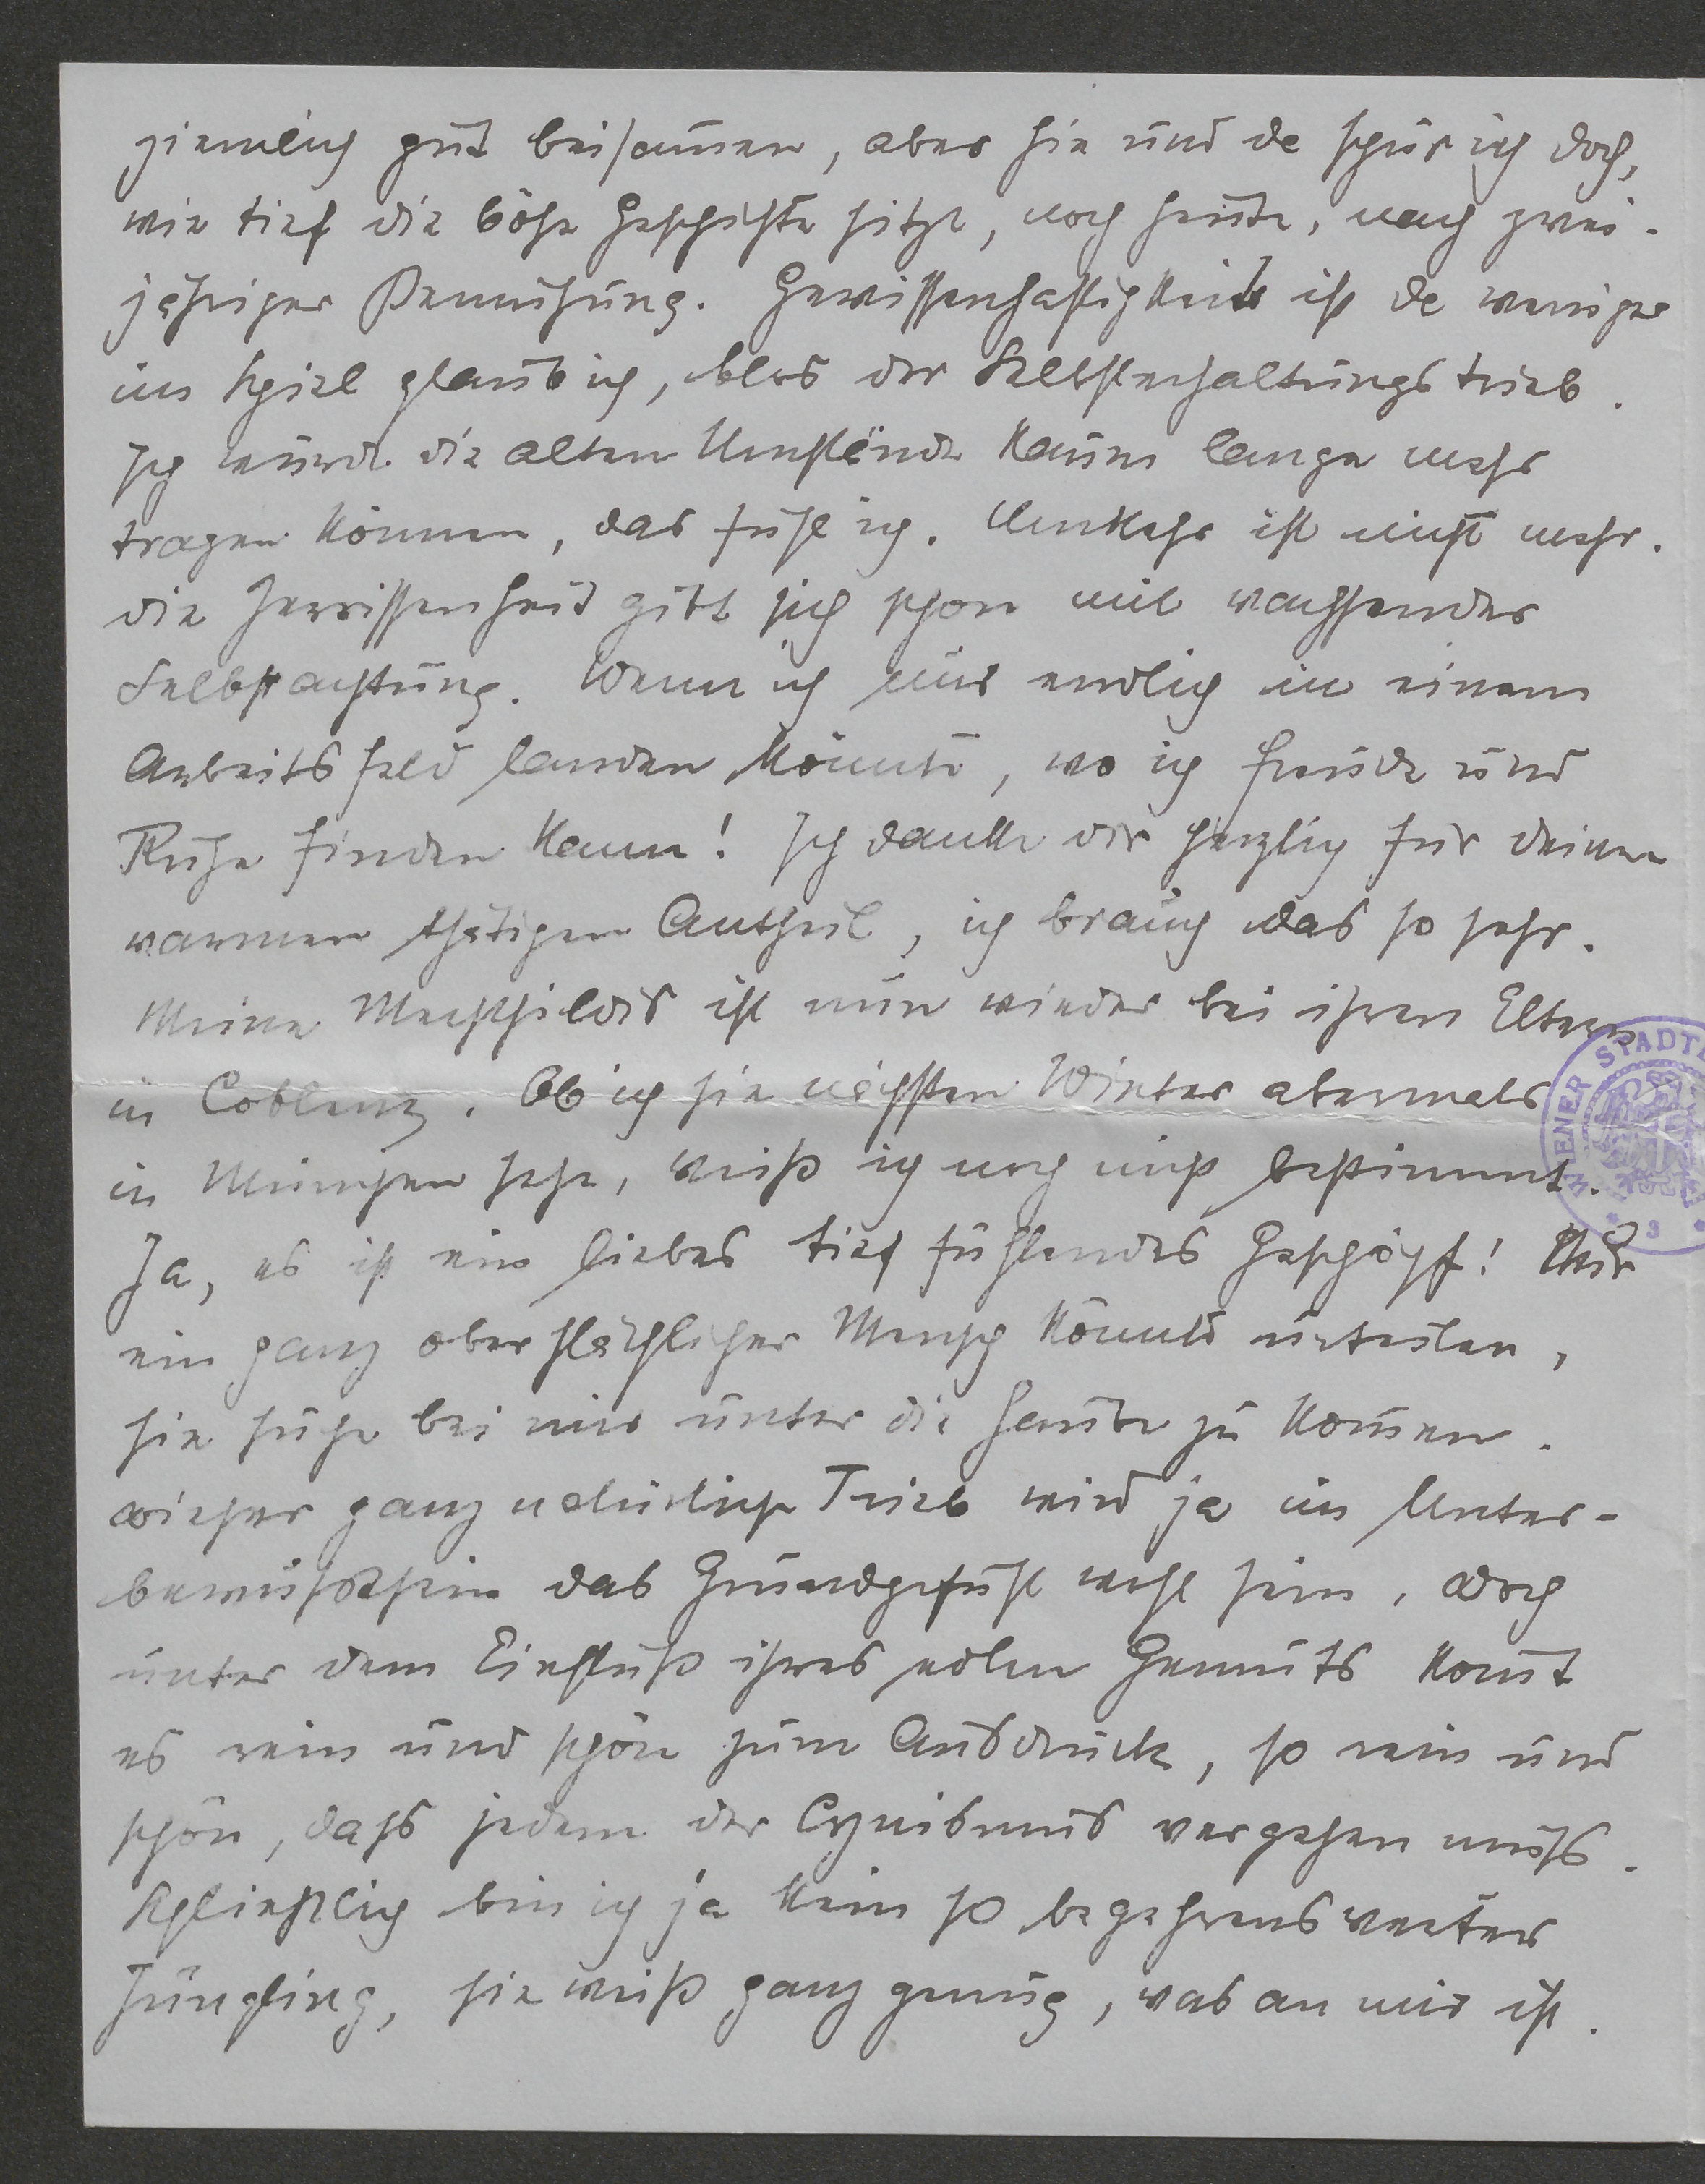 ziemlich gut beisam̅en, aber hie und da spür ich doch,
wie tief die böse Geschichte sitzt, noch heute, nach zwei-
jähriger Bemühung. Gewissenhaftigkeit ist da weniger
im Spiel glaub ich, blos der Selbsterhaltungstrieb.
Ich würde die alten Umstände kaum lange mehr
tragen können, das fühl ich. Umkehr ist nicht mehr.
die Zerrissenheit gibt sich schon mit wachsender
Selbstachtung. Wenn ich nur endlich in einem
Arbeitsfeld landen könnte, wo ich Freude und
Ruhe finden kann! Ich danke dir herzlich für deinen
warmen thätigen Antheil, ich brauch das so sehr.
Meine Mechthildis ist nun wieder bei ihren Eltern
in Coblenz. Ob ich sie nächsten Winter abermals
in München sehe, weiß ich noch nicht bestimmt.
Ja, es ist ein liebes tief fühlendes Geschöpf! Nur
ein ganz oberflächlicher Mensch könnte urteilen,
sie suche bei mir unter die Haube zu kom̅en.
dieser ganz natürliche Trieb wird ja im Unter-
bewußtsein das Grundgefühl wohl sein, doch
unter dem Einfluß ihres edlen Gemüts kom̅t
es rein und schön zum Ausdruck, so rein und
schön, dass jedem der Cynismus vergehen muss.
Schließlich bin ich ja kein so begehrenswerter
Jüngling, sie weiß ganz genug, was an mir ist.
WIENER STADT
3